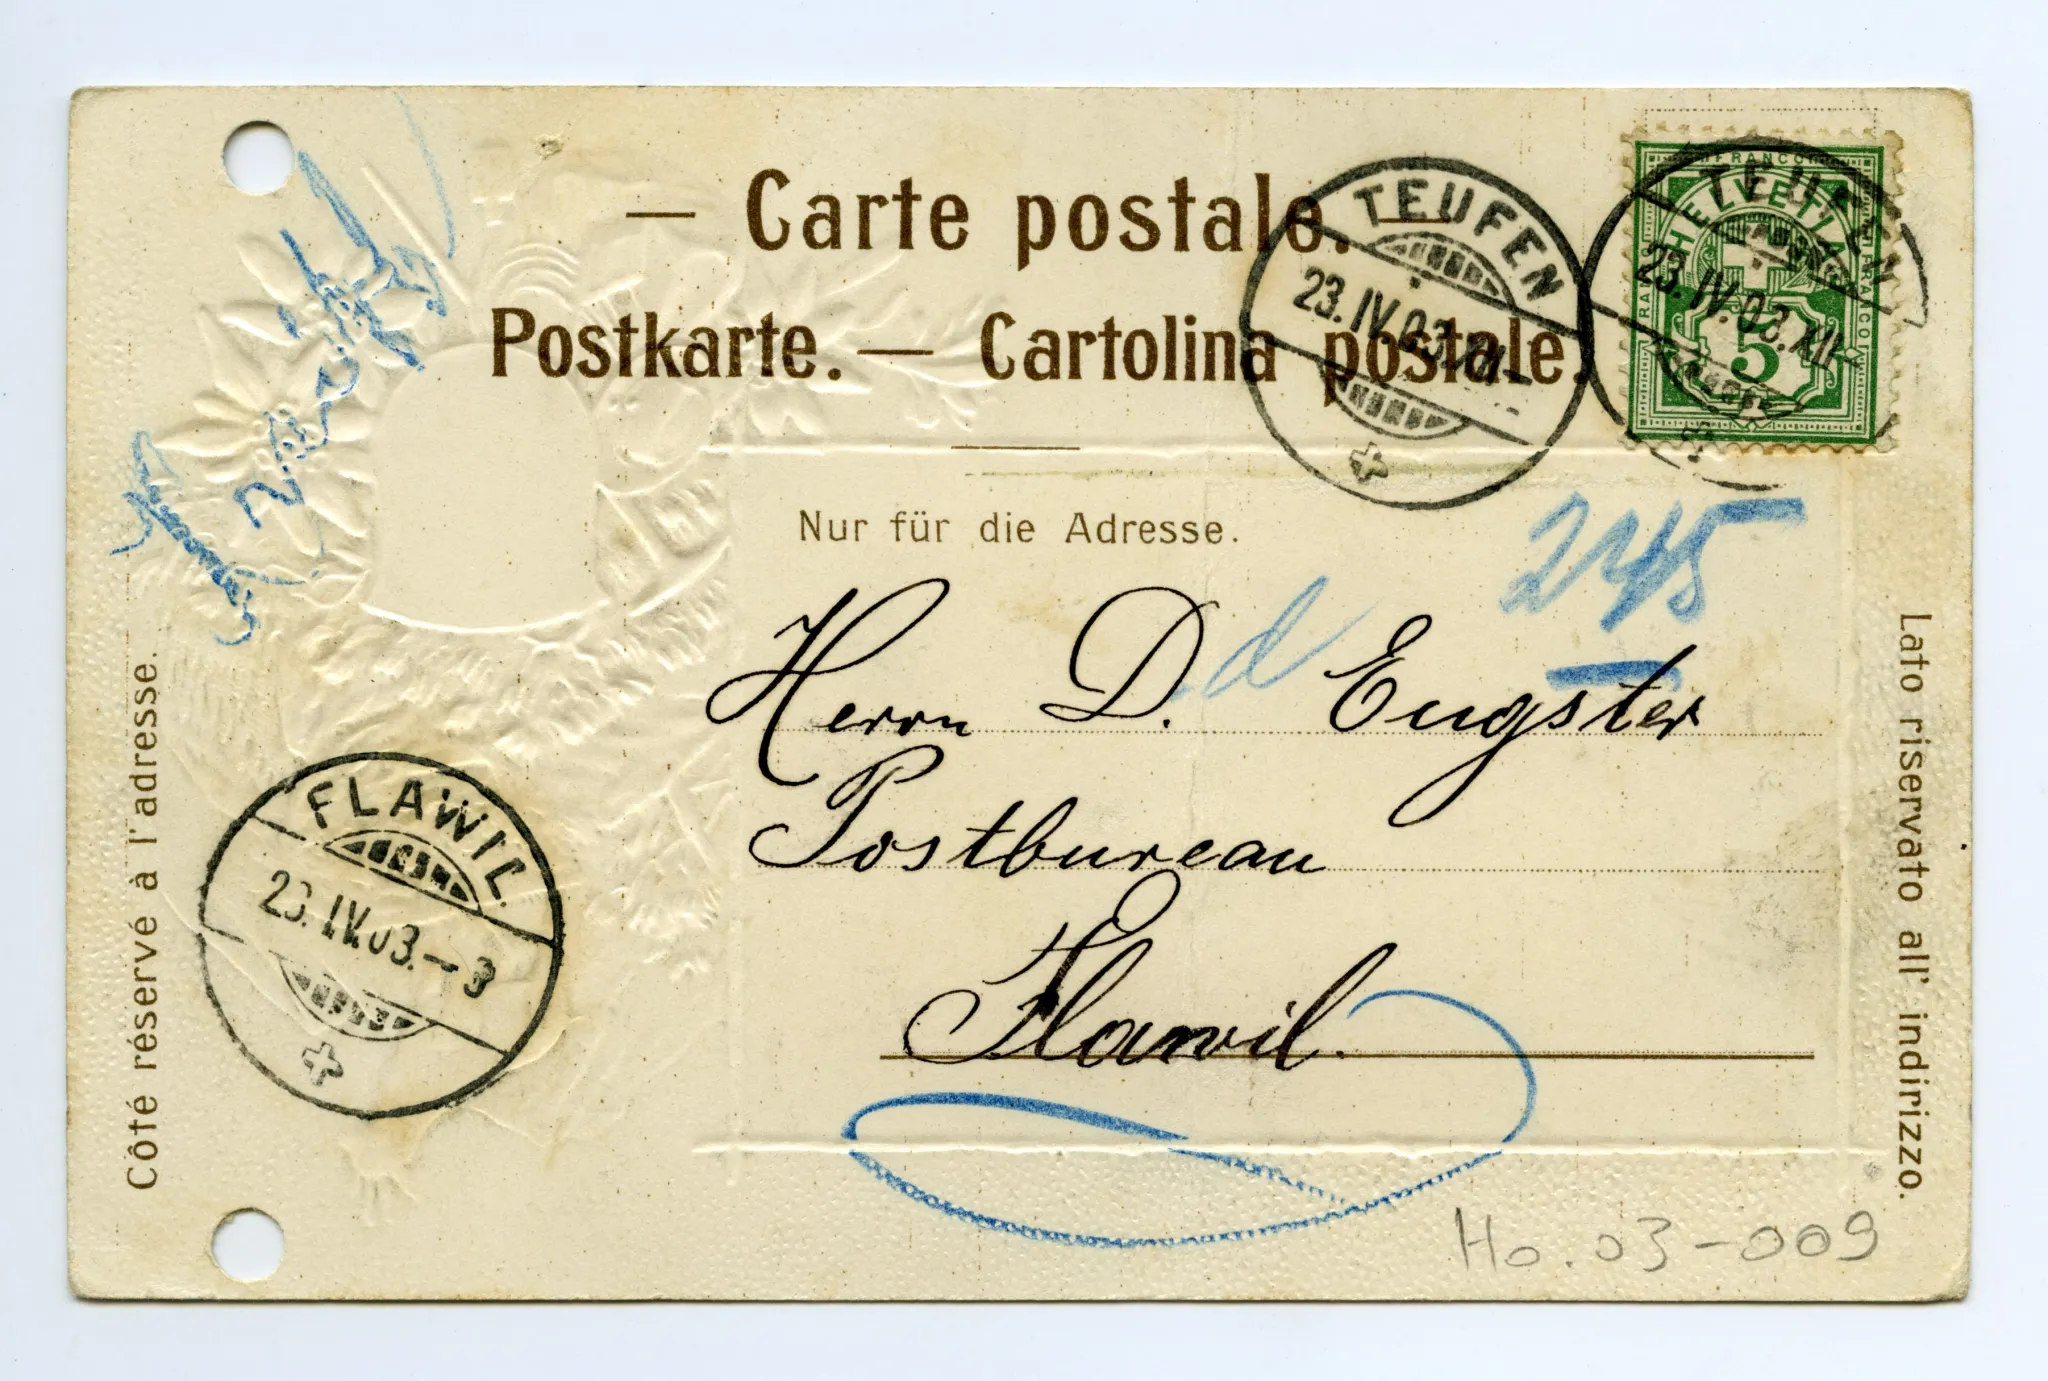 Carte postale.
Postkarte. — Cartolina postale.
TEUFEN
23.IV.03.XII
TEUFEN
23.IV.03.XII
FRANCO
HELVETIA
5
Nur für die Adresse.
245
d
Herrn D. Engster
Postbureau
Flawil.
FLAWIL
23.IV.03.-3
Côté réservé à l'adresse.
Lato riservato all' indirizzo.
Ho.03-009